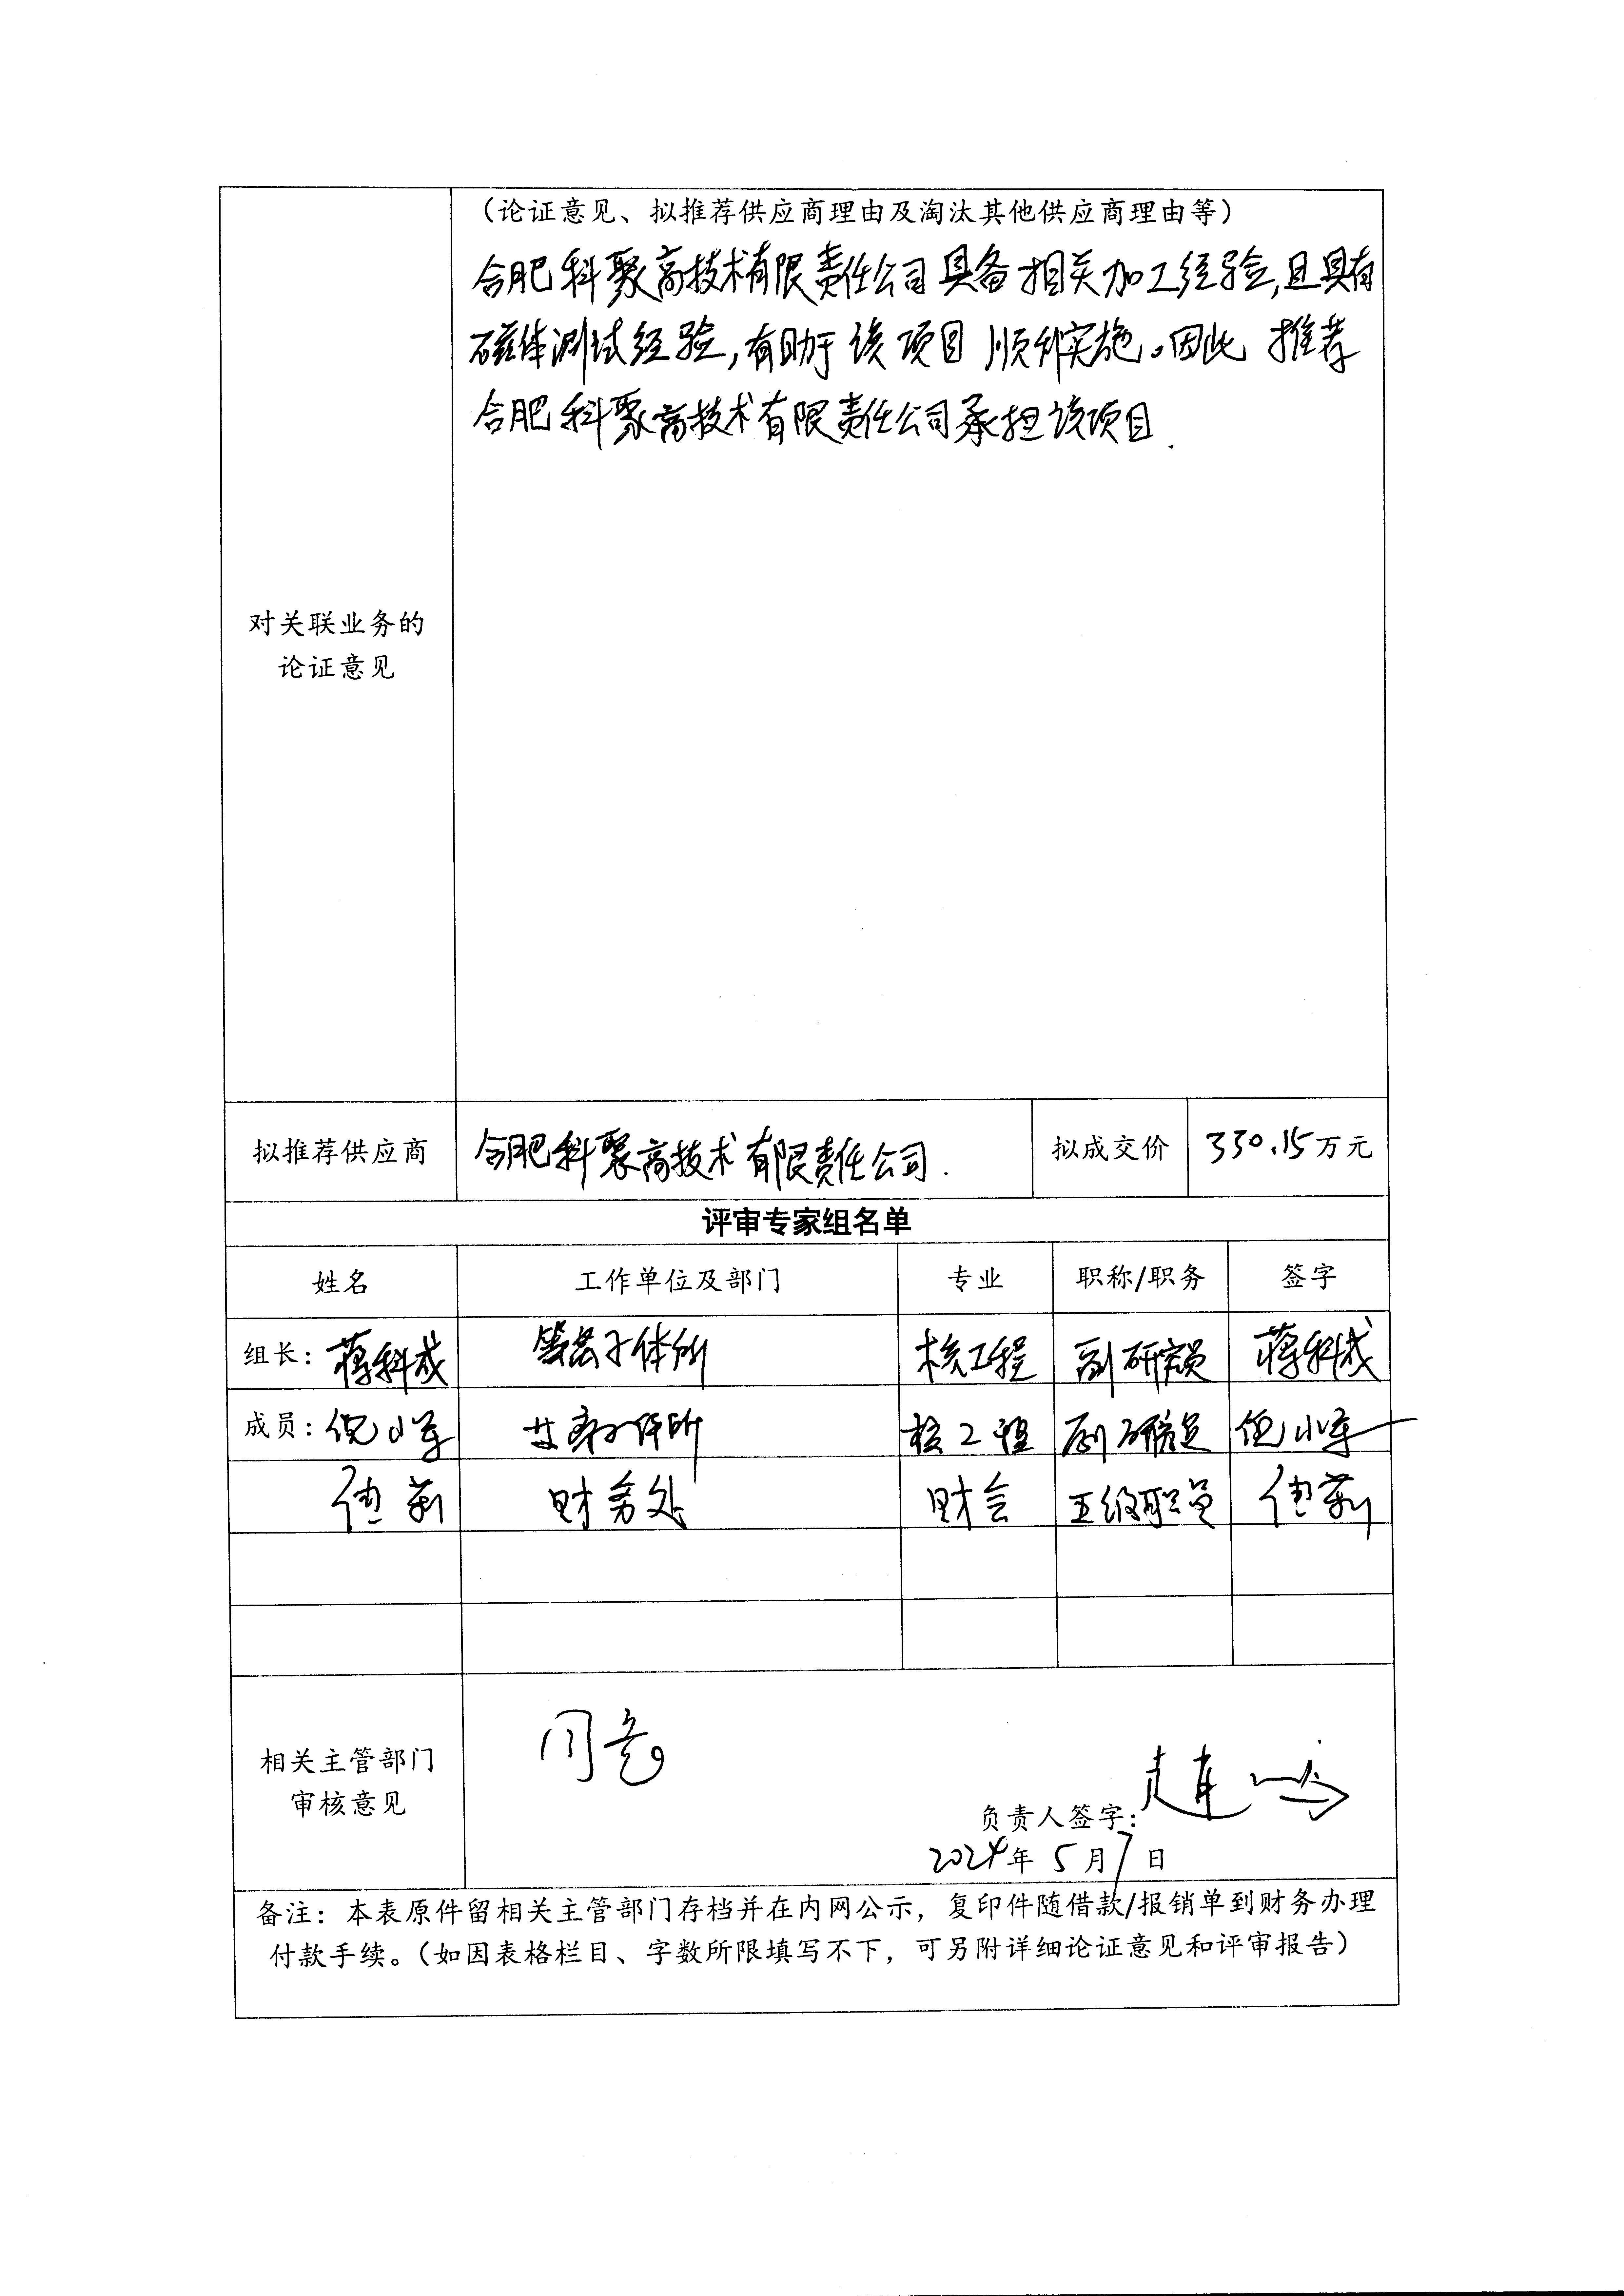 （论证意见、拟推荐供应商理由及淘汰其他供应商理由等）
合肥科聚高技术有限责任公司具备相关加工经验,且具有
磁体测试经验,有助于该项目顺利实施。因此 推荐
合肥科聚高技术有限责任公司承担该项目.
对关联业务的
论证意见
拟推荐供应商 合肥科聚高技术有限责任公司. 拟成交价 330.15万元
评审专家组名单
姓名 工作单位及部门 专业 职称/职务 签字
组长：蒋科成 等离子体所 核工程 副研究员 蒋科成
成员：倪小军 核工程 副研究员 倪小军
财务处 财会 五级职员
同意
相关主管部门
审核意见
负责人签字：
2024年 5月7日
备注：本表原件留相关主管部门存档并在内网公示，复印件随借款/报销单到财务办理
付款手续。（如因表格栏目、字数所限填写不下，可另附详细论证意见和评审报告）